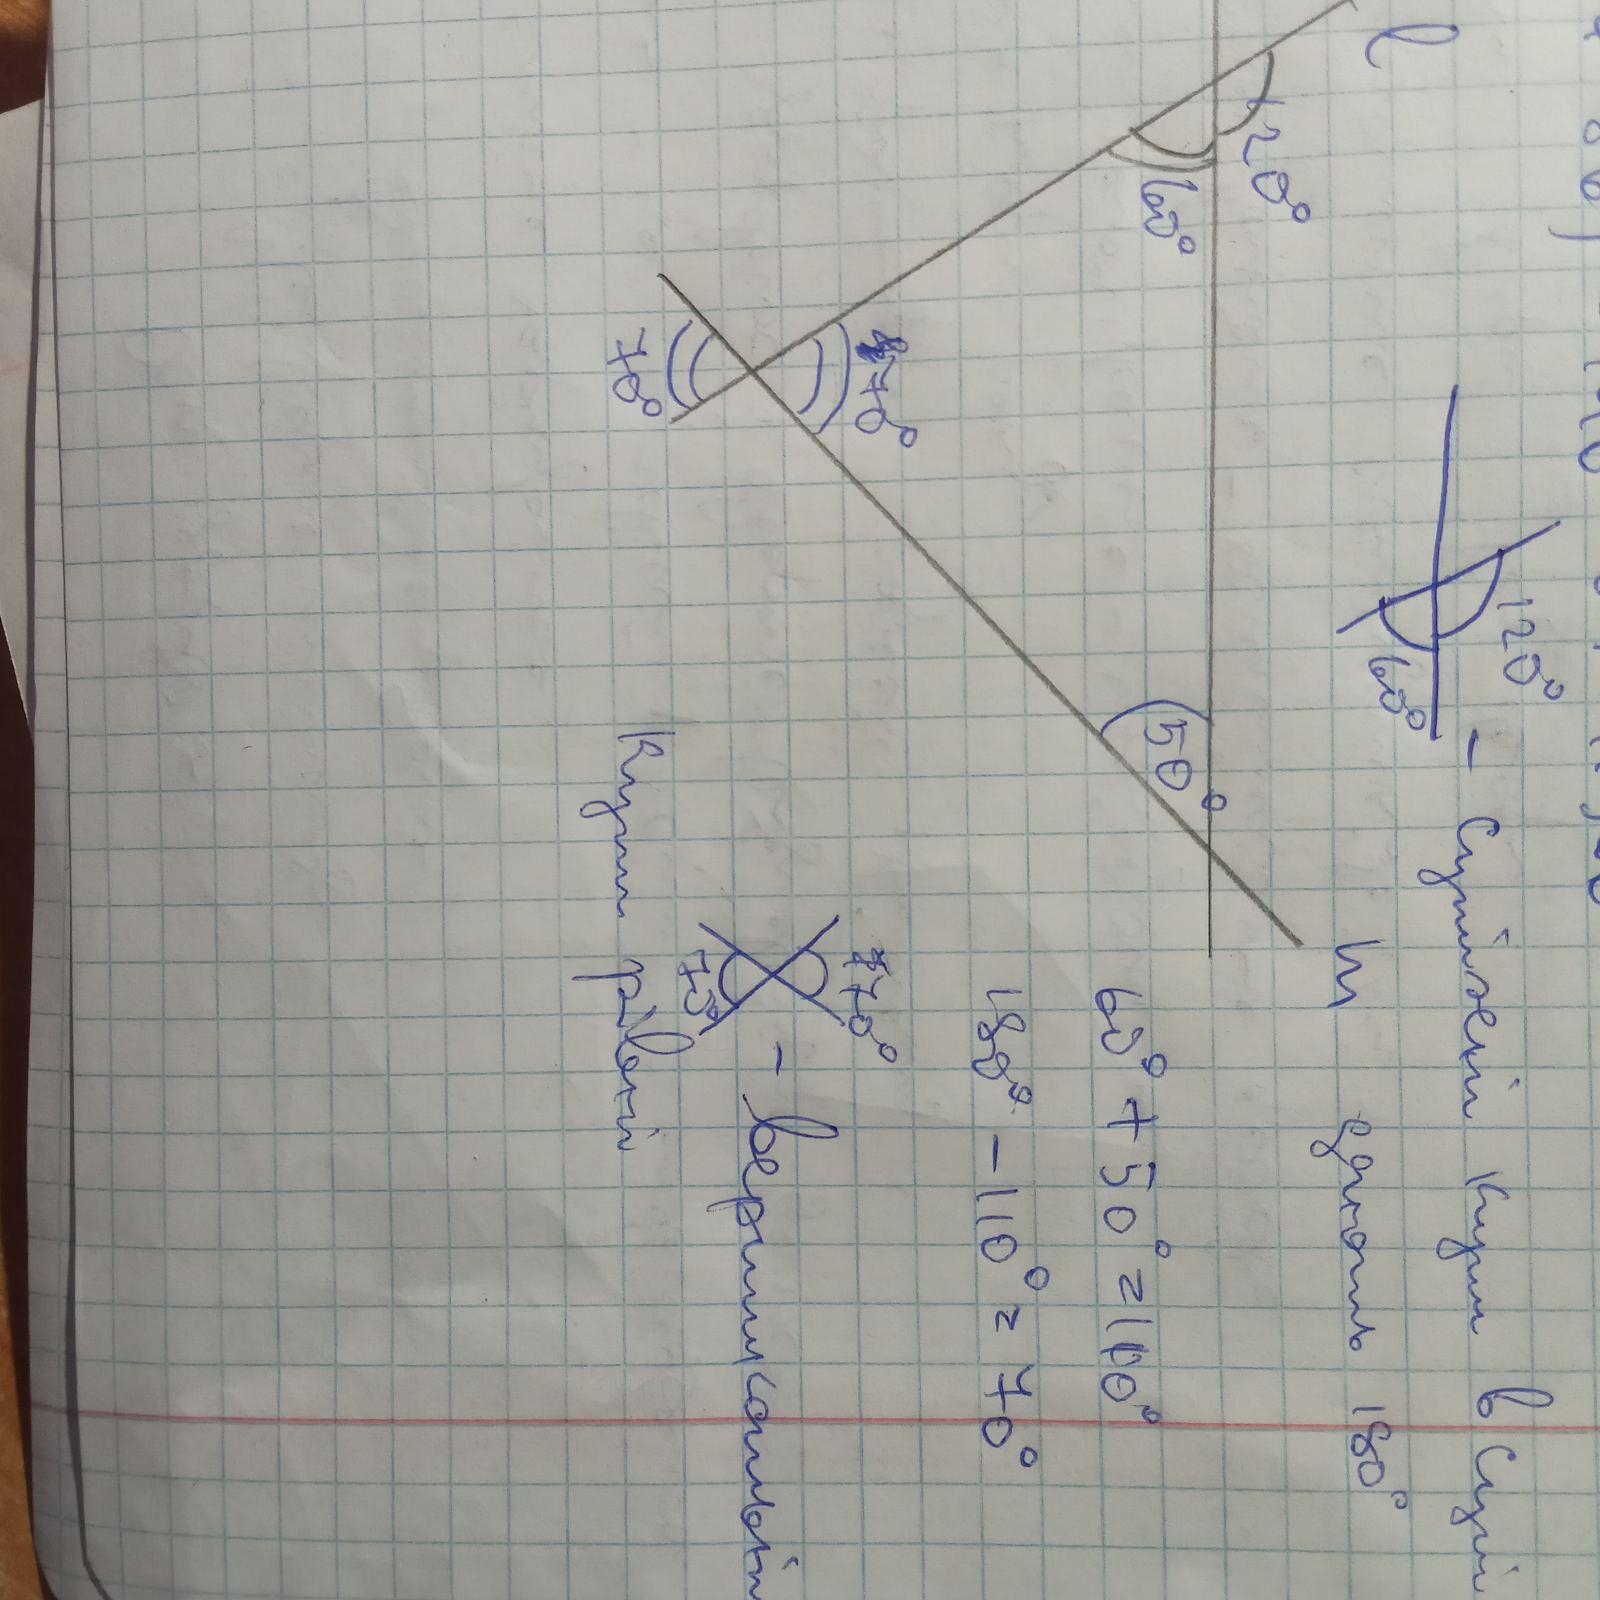 l
120°
60°
70°
70°
50°
120°
60°
- Суміжні кути в сумі
дають 180°
60° + 50° = 110°
180° - 110° = 70°
70°
70°
- вертикальні
кути рівні